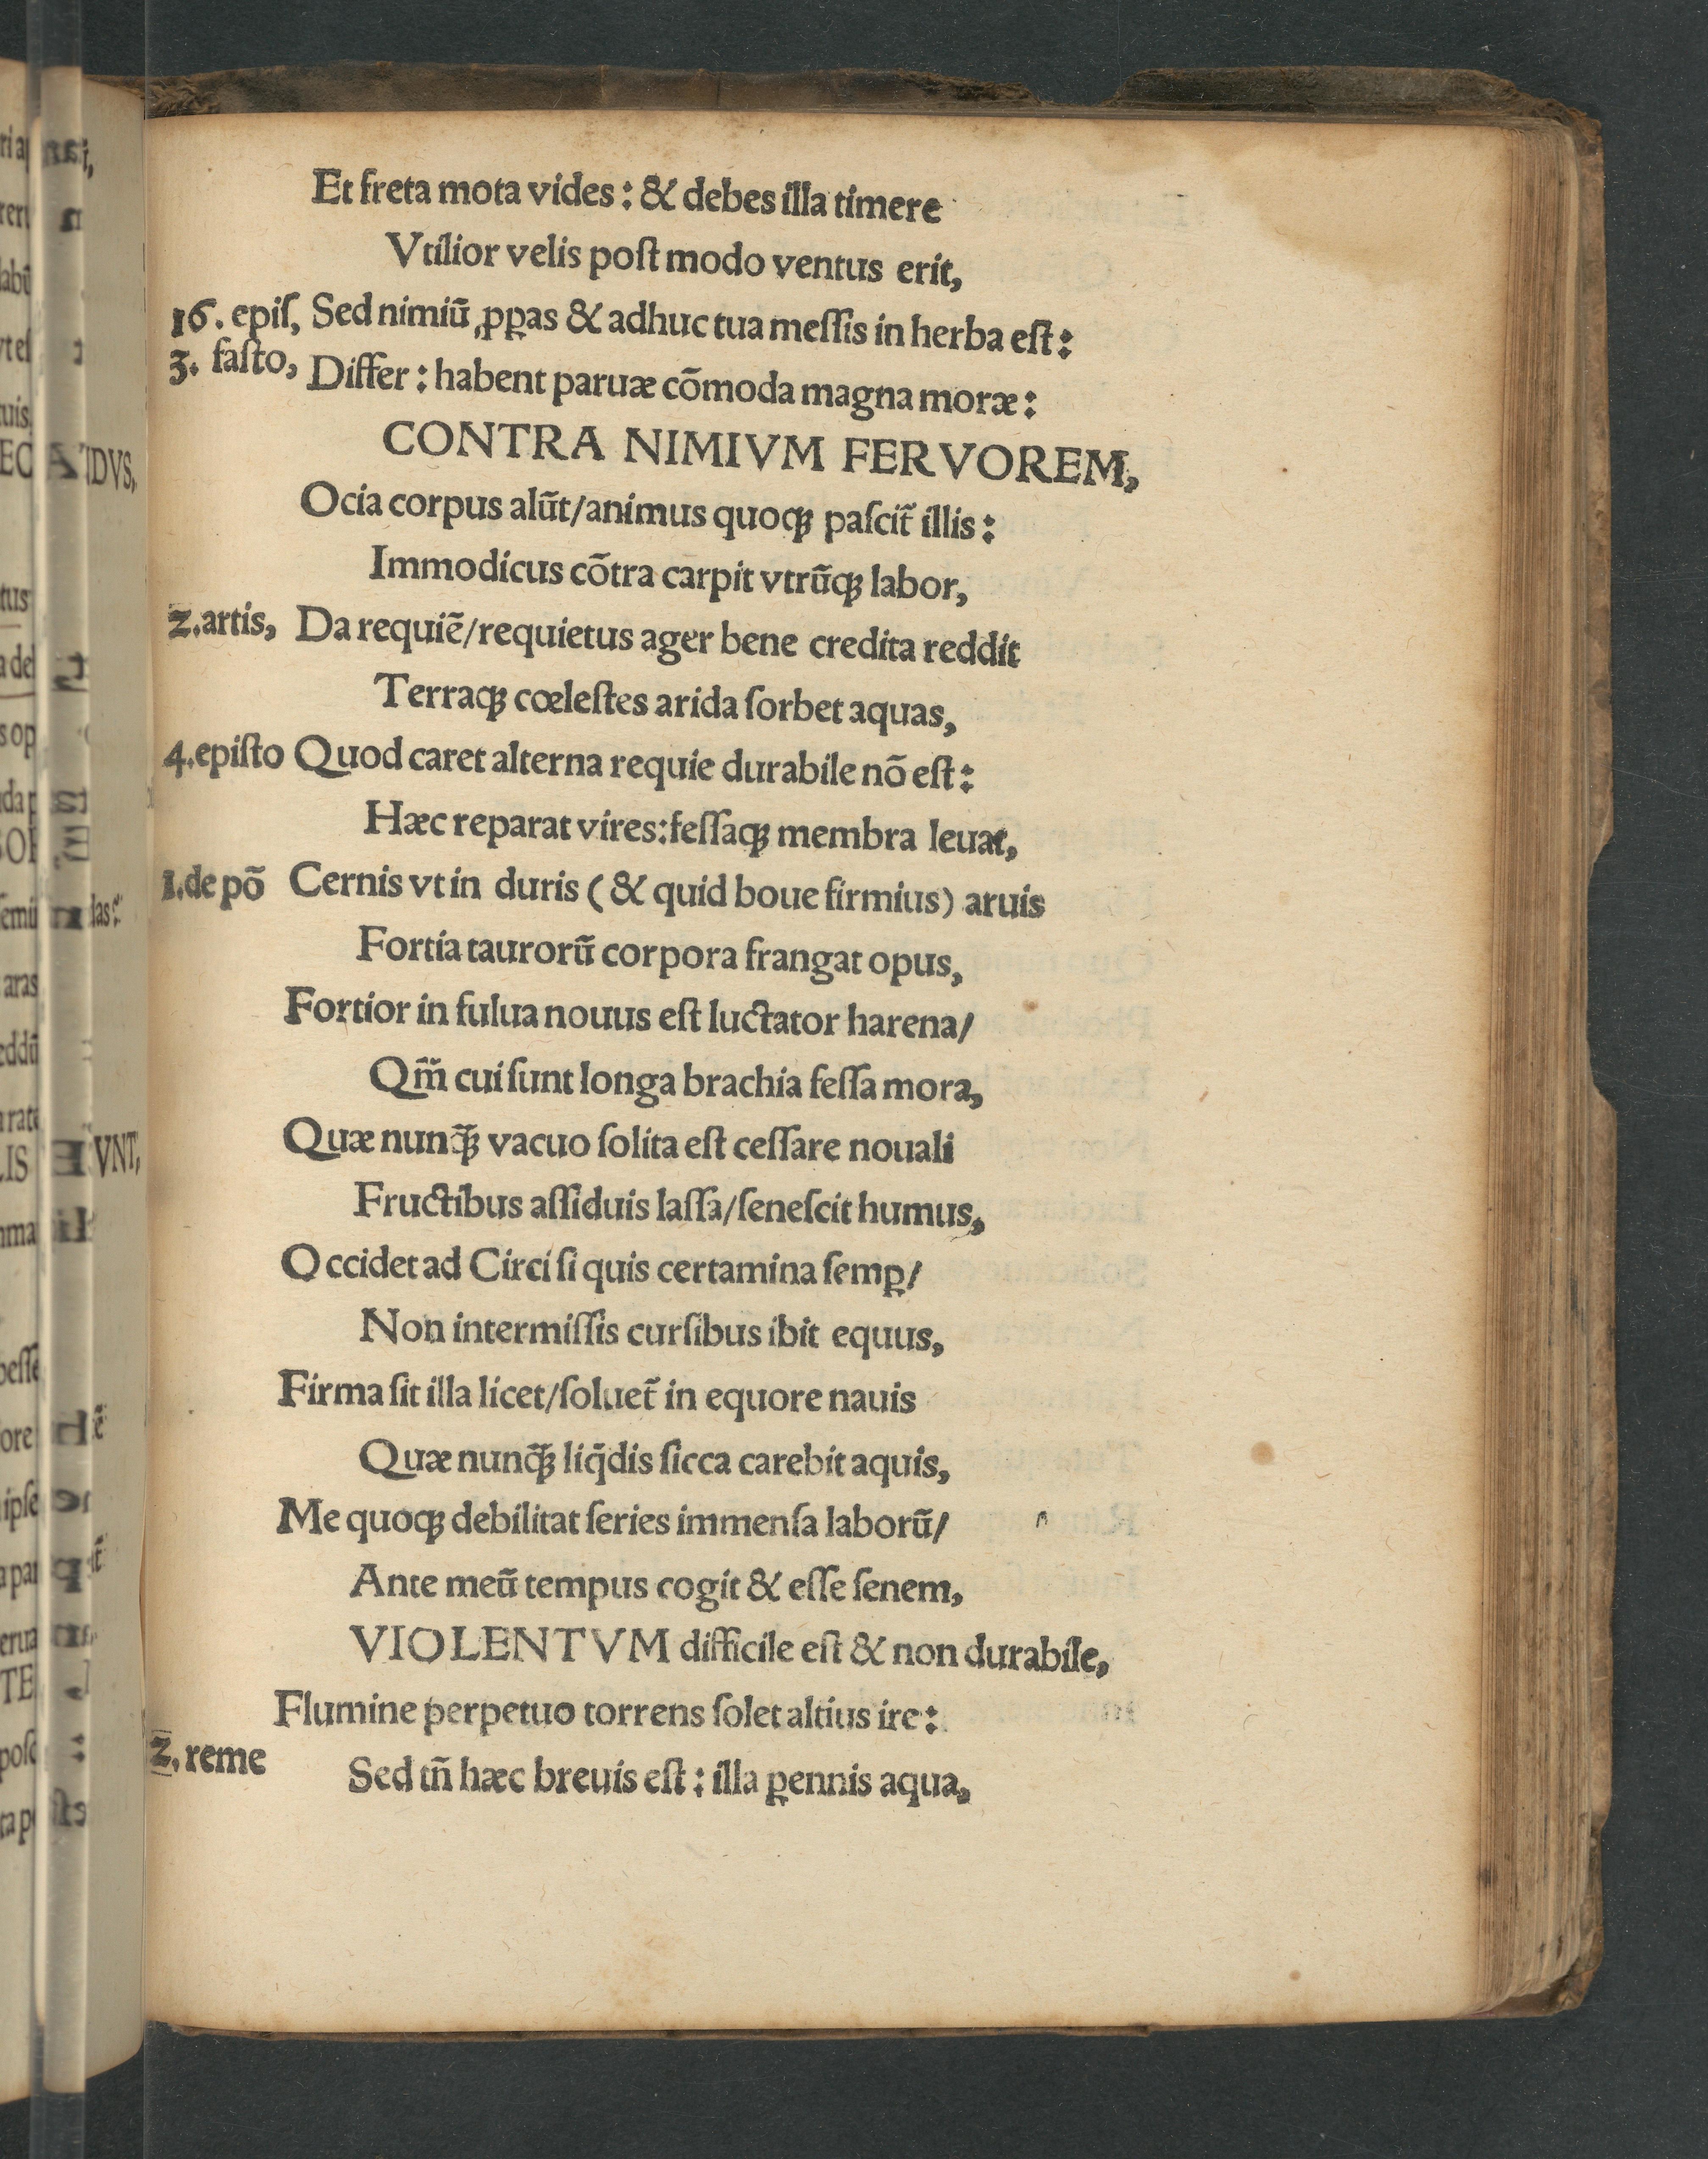 Et freta mota vides : & debes illa timere
Vtilior velis poſt modo ventus erit,
16. epiſ, Sed nimiũ ꝓꝑas & adhuc tua meſſis in herba eſt :
3. faſto, Differ : habent paruæ cõmoda magna moræ :
CONTRA NIMIVM FERVOREM,
Ocia corpus alũt/animus quoqꝫ paſcit̃ illis :
Immodicus cõtra carpit vtrũqꝫ labor,
2.artis, Da requiẽ/requietus ager bene credita reddit
Terraqꝫ cœleſtes arida ſorbet aquas,
4.epiſto Quod caret alterna requie durabile nõ eſt :
Hæc reparat vires:feſſaqꝫ membra leuat,
1.de põ Cernis vt in duris ( & quid boue firmius) aruis
Fortia taurorũ corpora frangat opus,
Fortior in fulua nouus eſt luctator harena/
Qm̃ cui ſunt longa brachia feſſa mora,
Quæ nunq̃ꝫ vacuo ſolita eſt ceſſare nouali
Fructibus aſſiduis laſſa/ſeneſcit humus,
Occidet ad Circi ſi quis certamina ſemꝑ/
Non intermiſſis curſibus ibit equus,
Firma ſit illa licet/ſoluet̃ in equore nauis
Quæ nunq̃ꝫ liq̃dis ſicca carebit aquis,
Me quoqꝫ debilitat ſeries immenſa laborũ/
Ante meũ tempus cogit & eſſe ſenem,
VIOLENTVM difficile eſt & non durabile,
Flumine perpetuo torrens ſolet altius ire :
2. reme Sed tñ hæc breuis eſt : illa ꝑennis aqua,